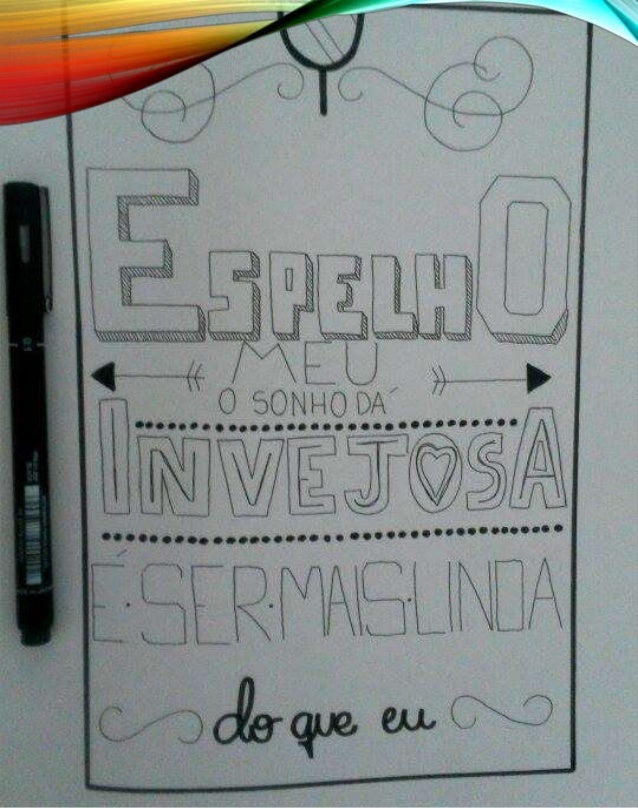 ESPELHO
MEU
O SONHO DÁ
INVEJOSA
É·SER·MAIS·LINDA
do que eu